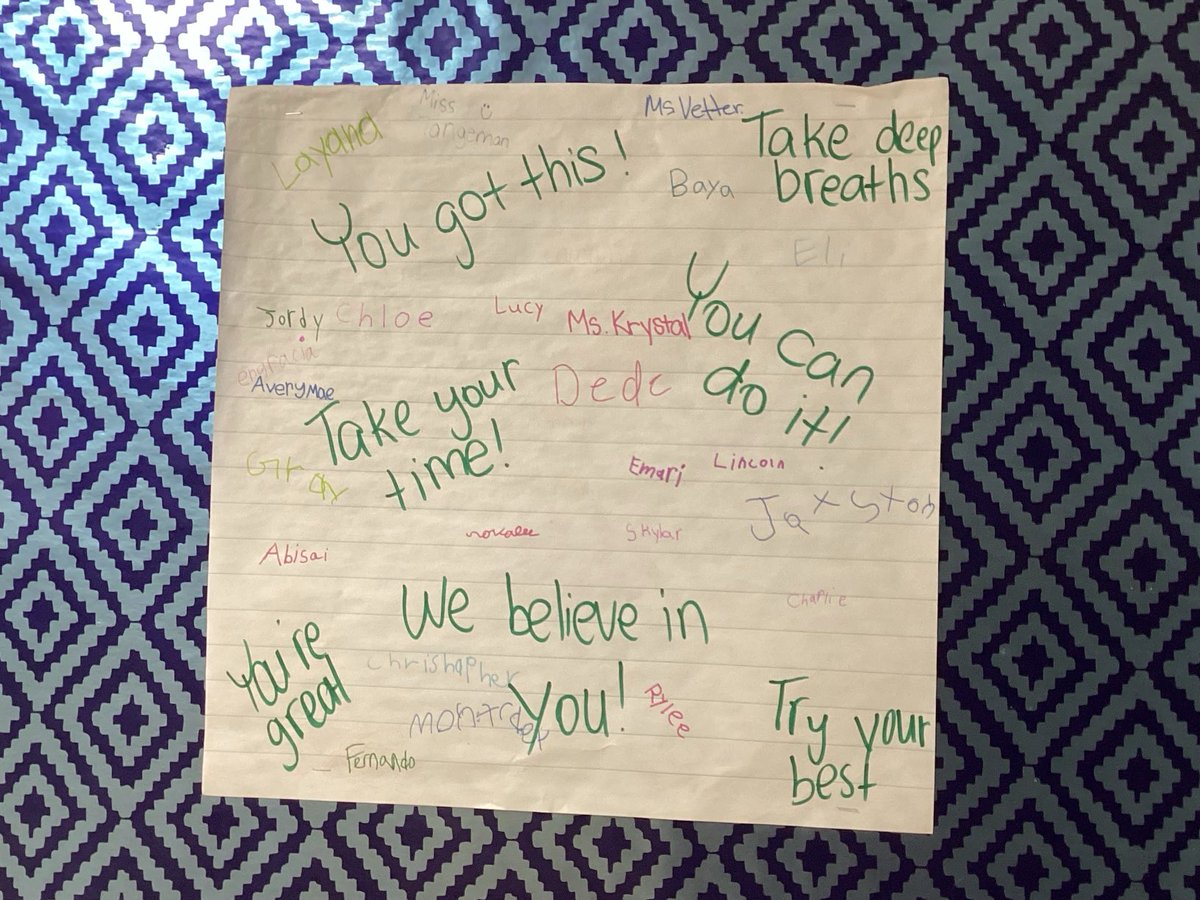 Miss
angeman
Ms Vetter
Layana
You got this!
Take deep
breaths
Baya
Eli
Jordy
Chloe
Lucy
Ms. Krystal
You can
do it!
engracia
AveryMae
Dede
Take your
time!
Emari
Lincoln
Jaxston
novalee
Skylar
Abisai
Charlie
We believe in
you!
You're
great
Chrishapher
Rylee
Try your
best
Fernando